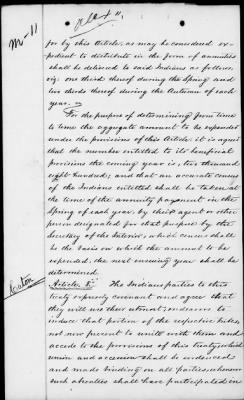 M-11
for by this Article, as may be considered ex-
pedient to distribute in the form of annuities
shall be delivered to said Indians as follows,
viz: one third thereof during the Spring and
two thirds thereof during the Autumn of each
year.
For the purpose of determining from time
to time the aggregate amount to be expended
under the provisions of this Article it is agreed
that the number entitled to its beneficial
provisions the coming year is, two thousand
eight hundred; and that an accurate census
of the Indians entitled shall be taken at
the time of the annuity payment in the
Spring of each year, by their agent or other
person designated for that purpose by the
Secretary of the Interior, which census shall
be the basis on which the amount to be
expended, the next ensuing year shall be
determined.
Article 5. The Indians parties to this
treaty expressly covenant and agree that
they will use their utmost endeavor to
induce that portion of the respective tribes
not now present to unite with them and
accede to the provisions of this treaty, which
union and accession shall be evidenced
and made binding on all parties whenever
such absentees shall have participated in